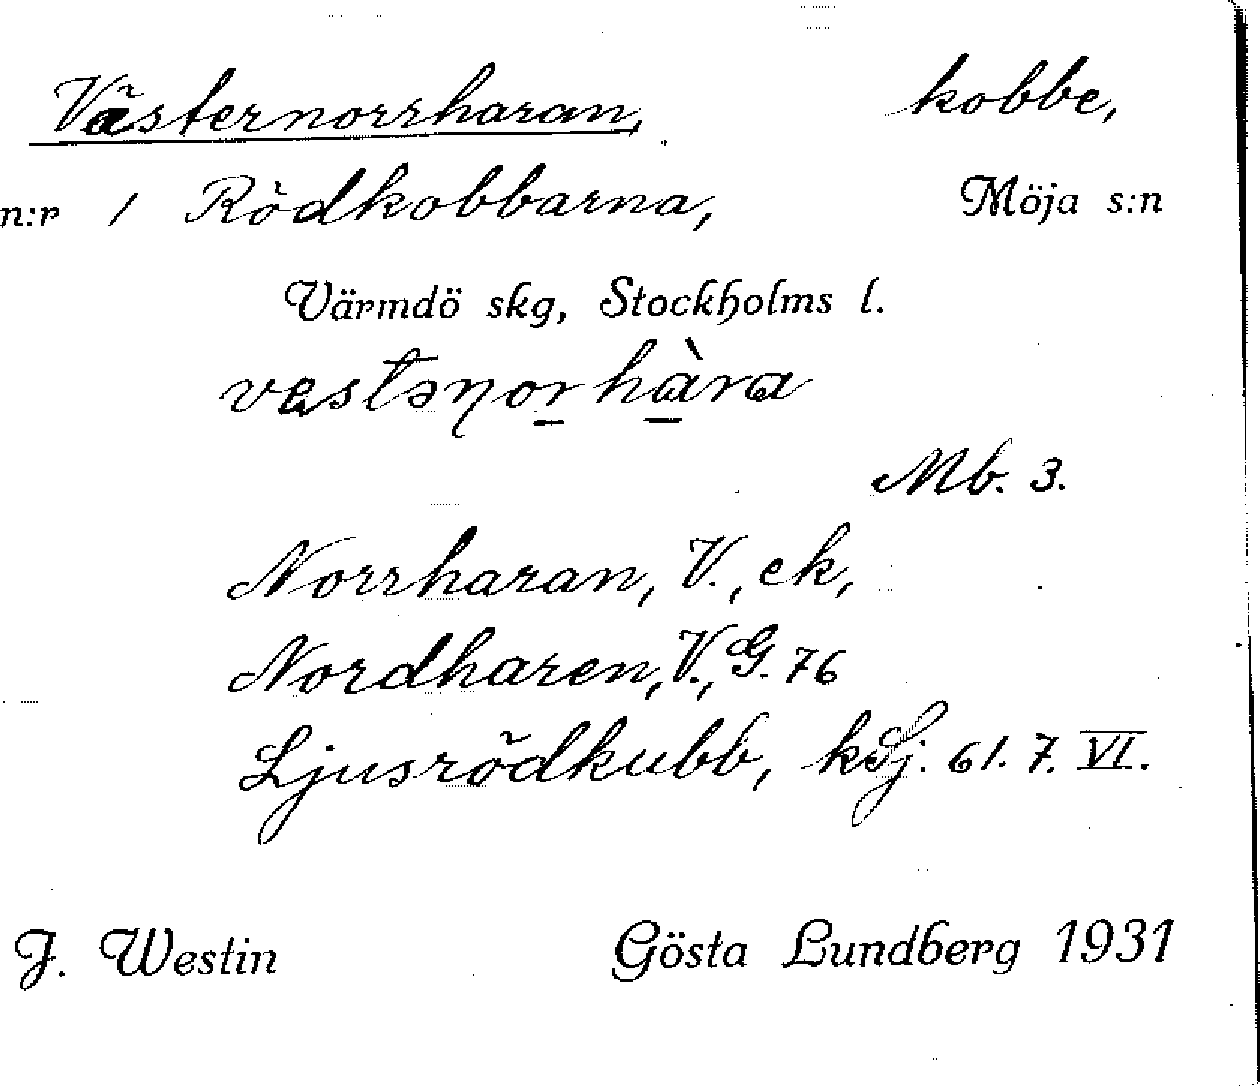 Västernorrharan, kobbe,
n:r / Rödkobbarna, Möja s:n
Värmdö skg, Stockholms l.
vastəƞor hàra
Mb. 3.
Norrharan, V., ek,
Nordharen, V., G. 76
Ljusrödkubb, kSj. 61. 7. VI.
J. Westin Gösta Lundberg 1931